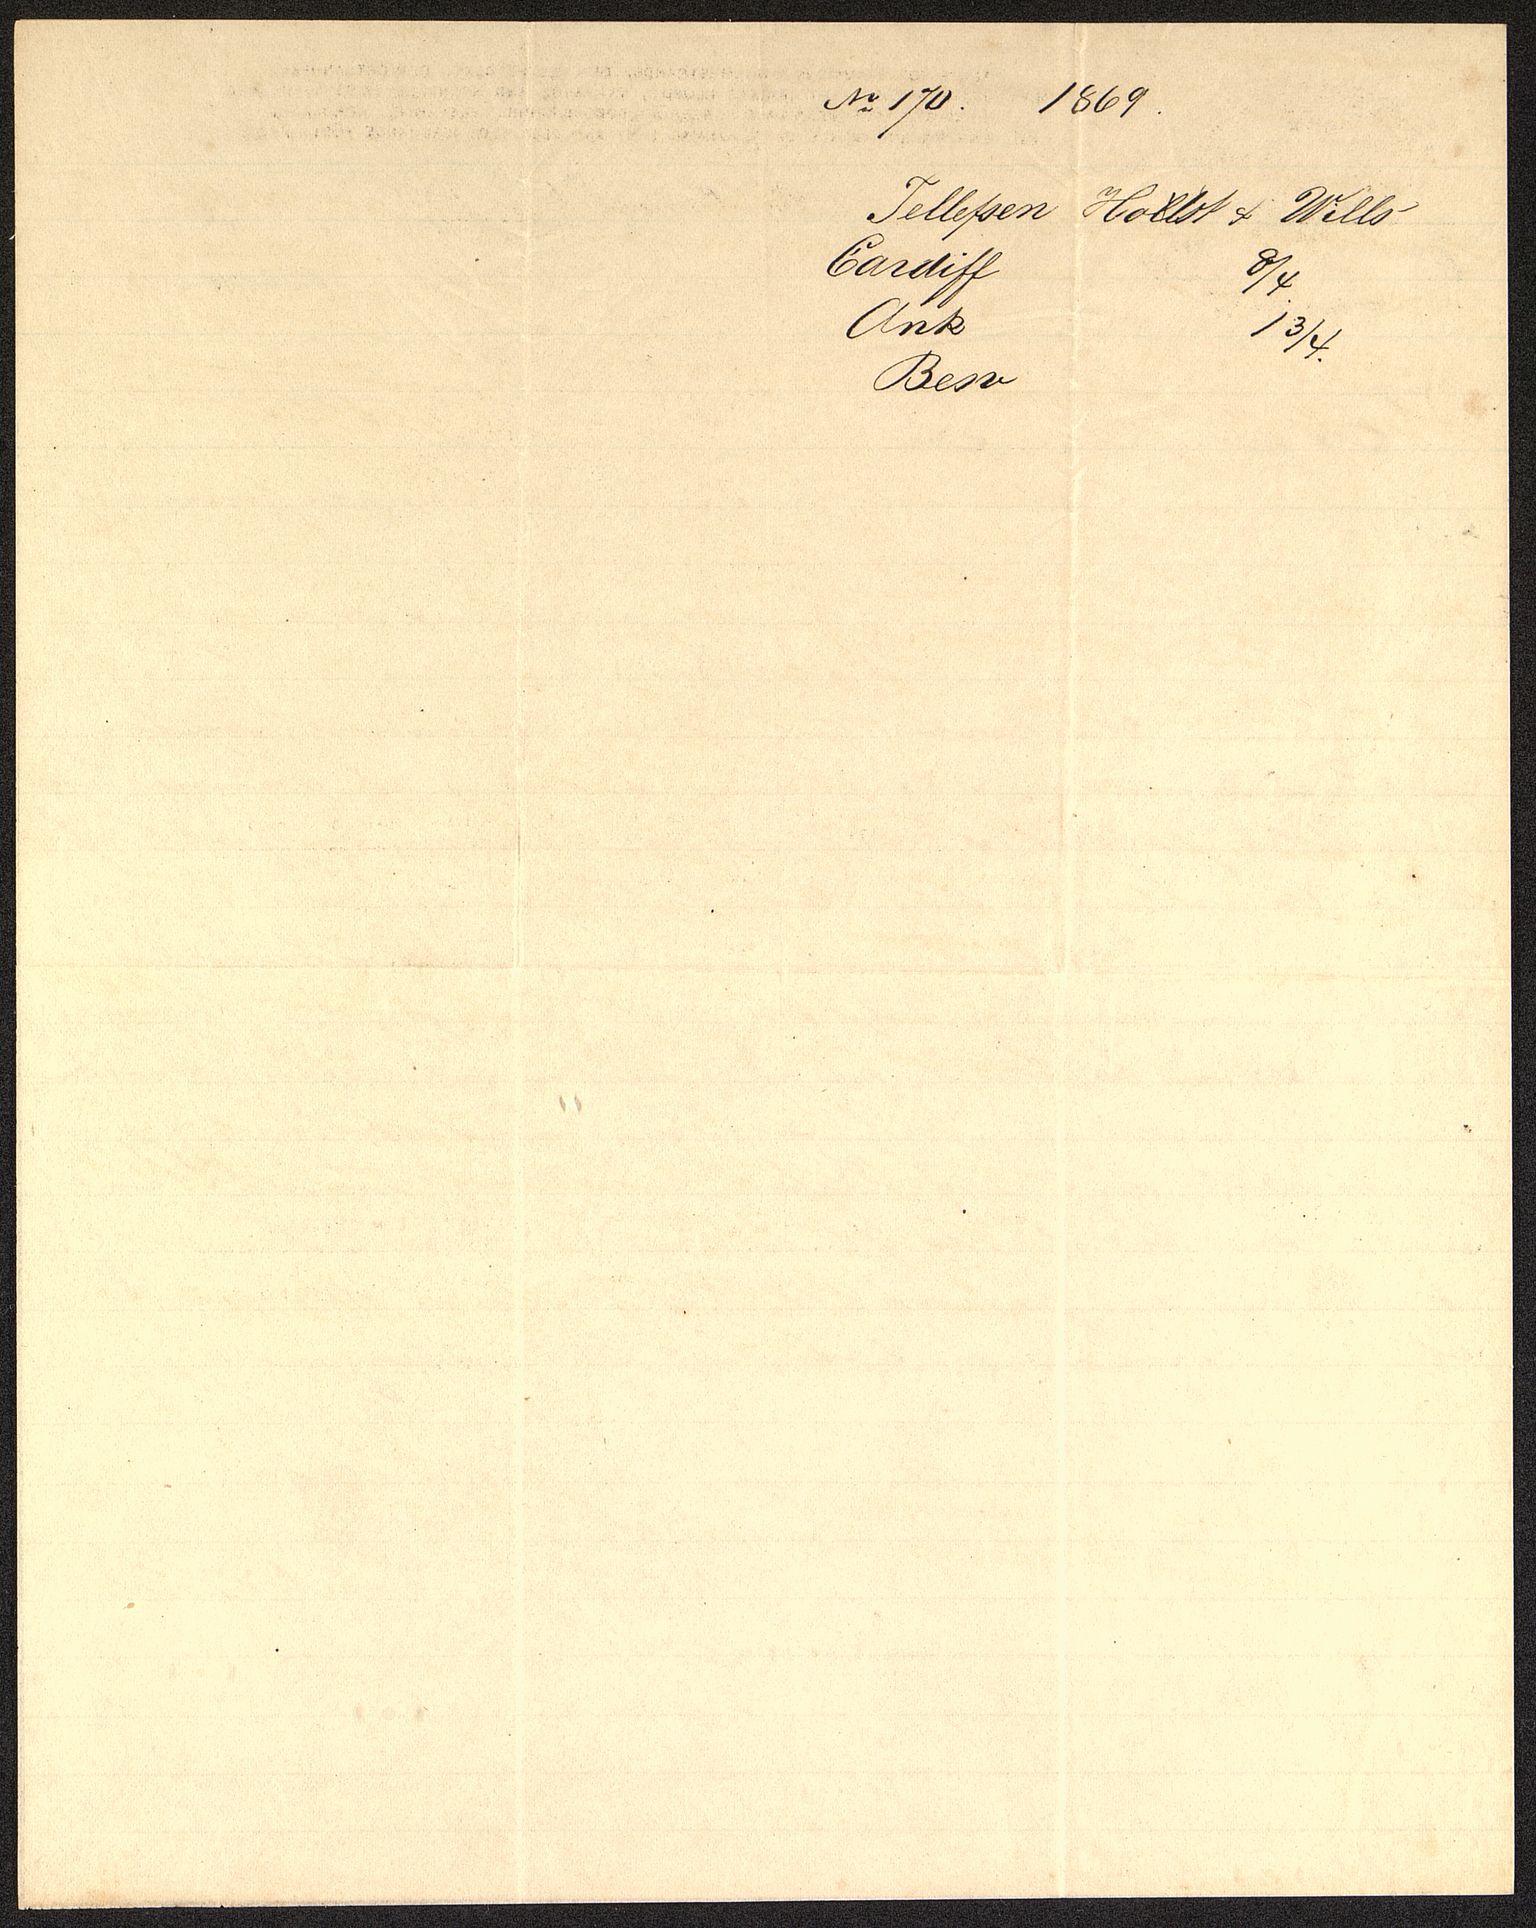 No 170. 1869.
Tellefsen Holst & Wills
Cardiff 8/4
Ank 13/4.
Besv